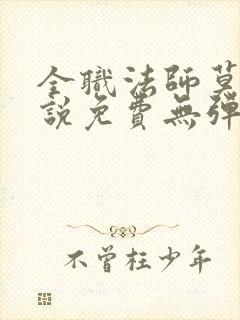 全職法師莫
說免費無彈
不曾枉少年